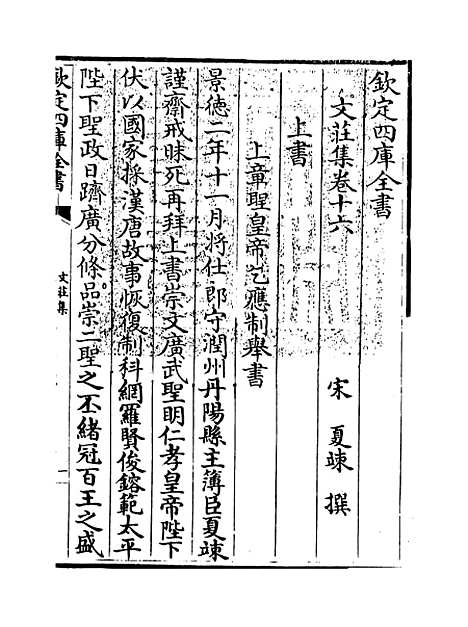 欽定四庫全書
文莊集卷十六
宋 夏竦 撰
上書
上章聖皇帝乞應制舉書
景德二年十一月将仕郎守潤州丹陽縣主簿臣夏竦
謹齋戒昧死再拜上書崇文廣武聖明仁孝皇帝陛下
伏以國家採漢唐故事恢復制科網羅賢俊鎔範太平
陛下聖政日躋廣分條品崇二聖之丕緒冠百王之盛
欽定四庫全書
文莊集
一